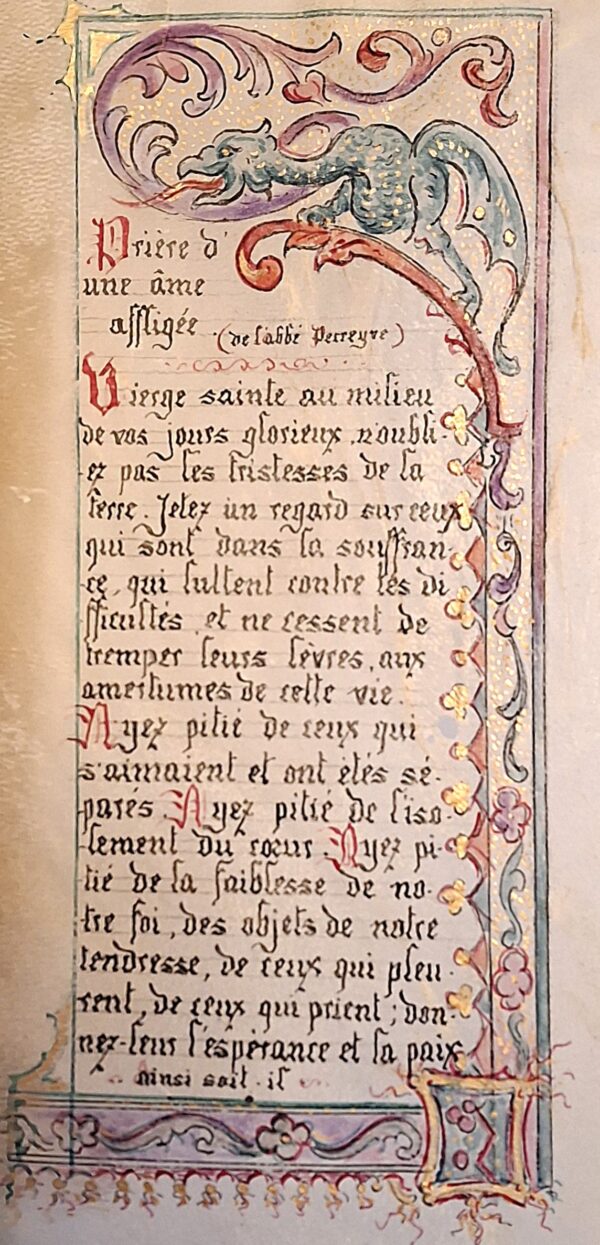 Prière d'
une âme
affligée (de l'abbé Perreyve)
Vierge sainte au milieu
de vos jours glorieux, n'oubli-
ez pas les tristesses de la
terre. Jetez un regard sur ceux
qui sont dans la souffran-
ce, qui luttent contre les di
fficultés et ne cessent de
tremper leurs lèvres, aux
amertumes de cette vie.
Ayez pitié de ceux qui
s'aimaient et ont étés sé-
parés. Ayez pitié de l'iso-
lement du cœur. Ayez pi-
tié de la faiblesse de no-
tre foi, des objets de notre
tendresse, de ceux qui pleu-
rent, de ceux qui prient; don-
nez-leur l'espérance et la paix
ainsi soit-il